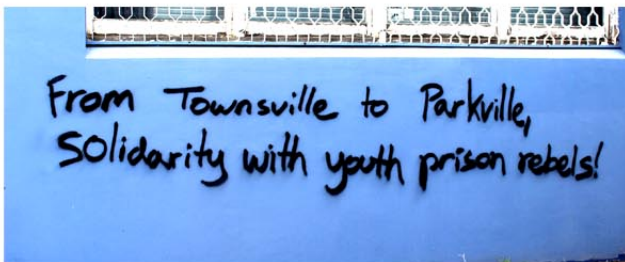 From Townsville to Parkville,
Solidarity with youth prison rebels!